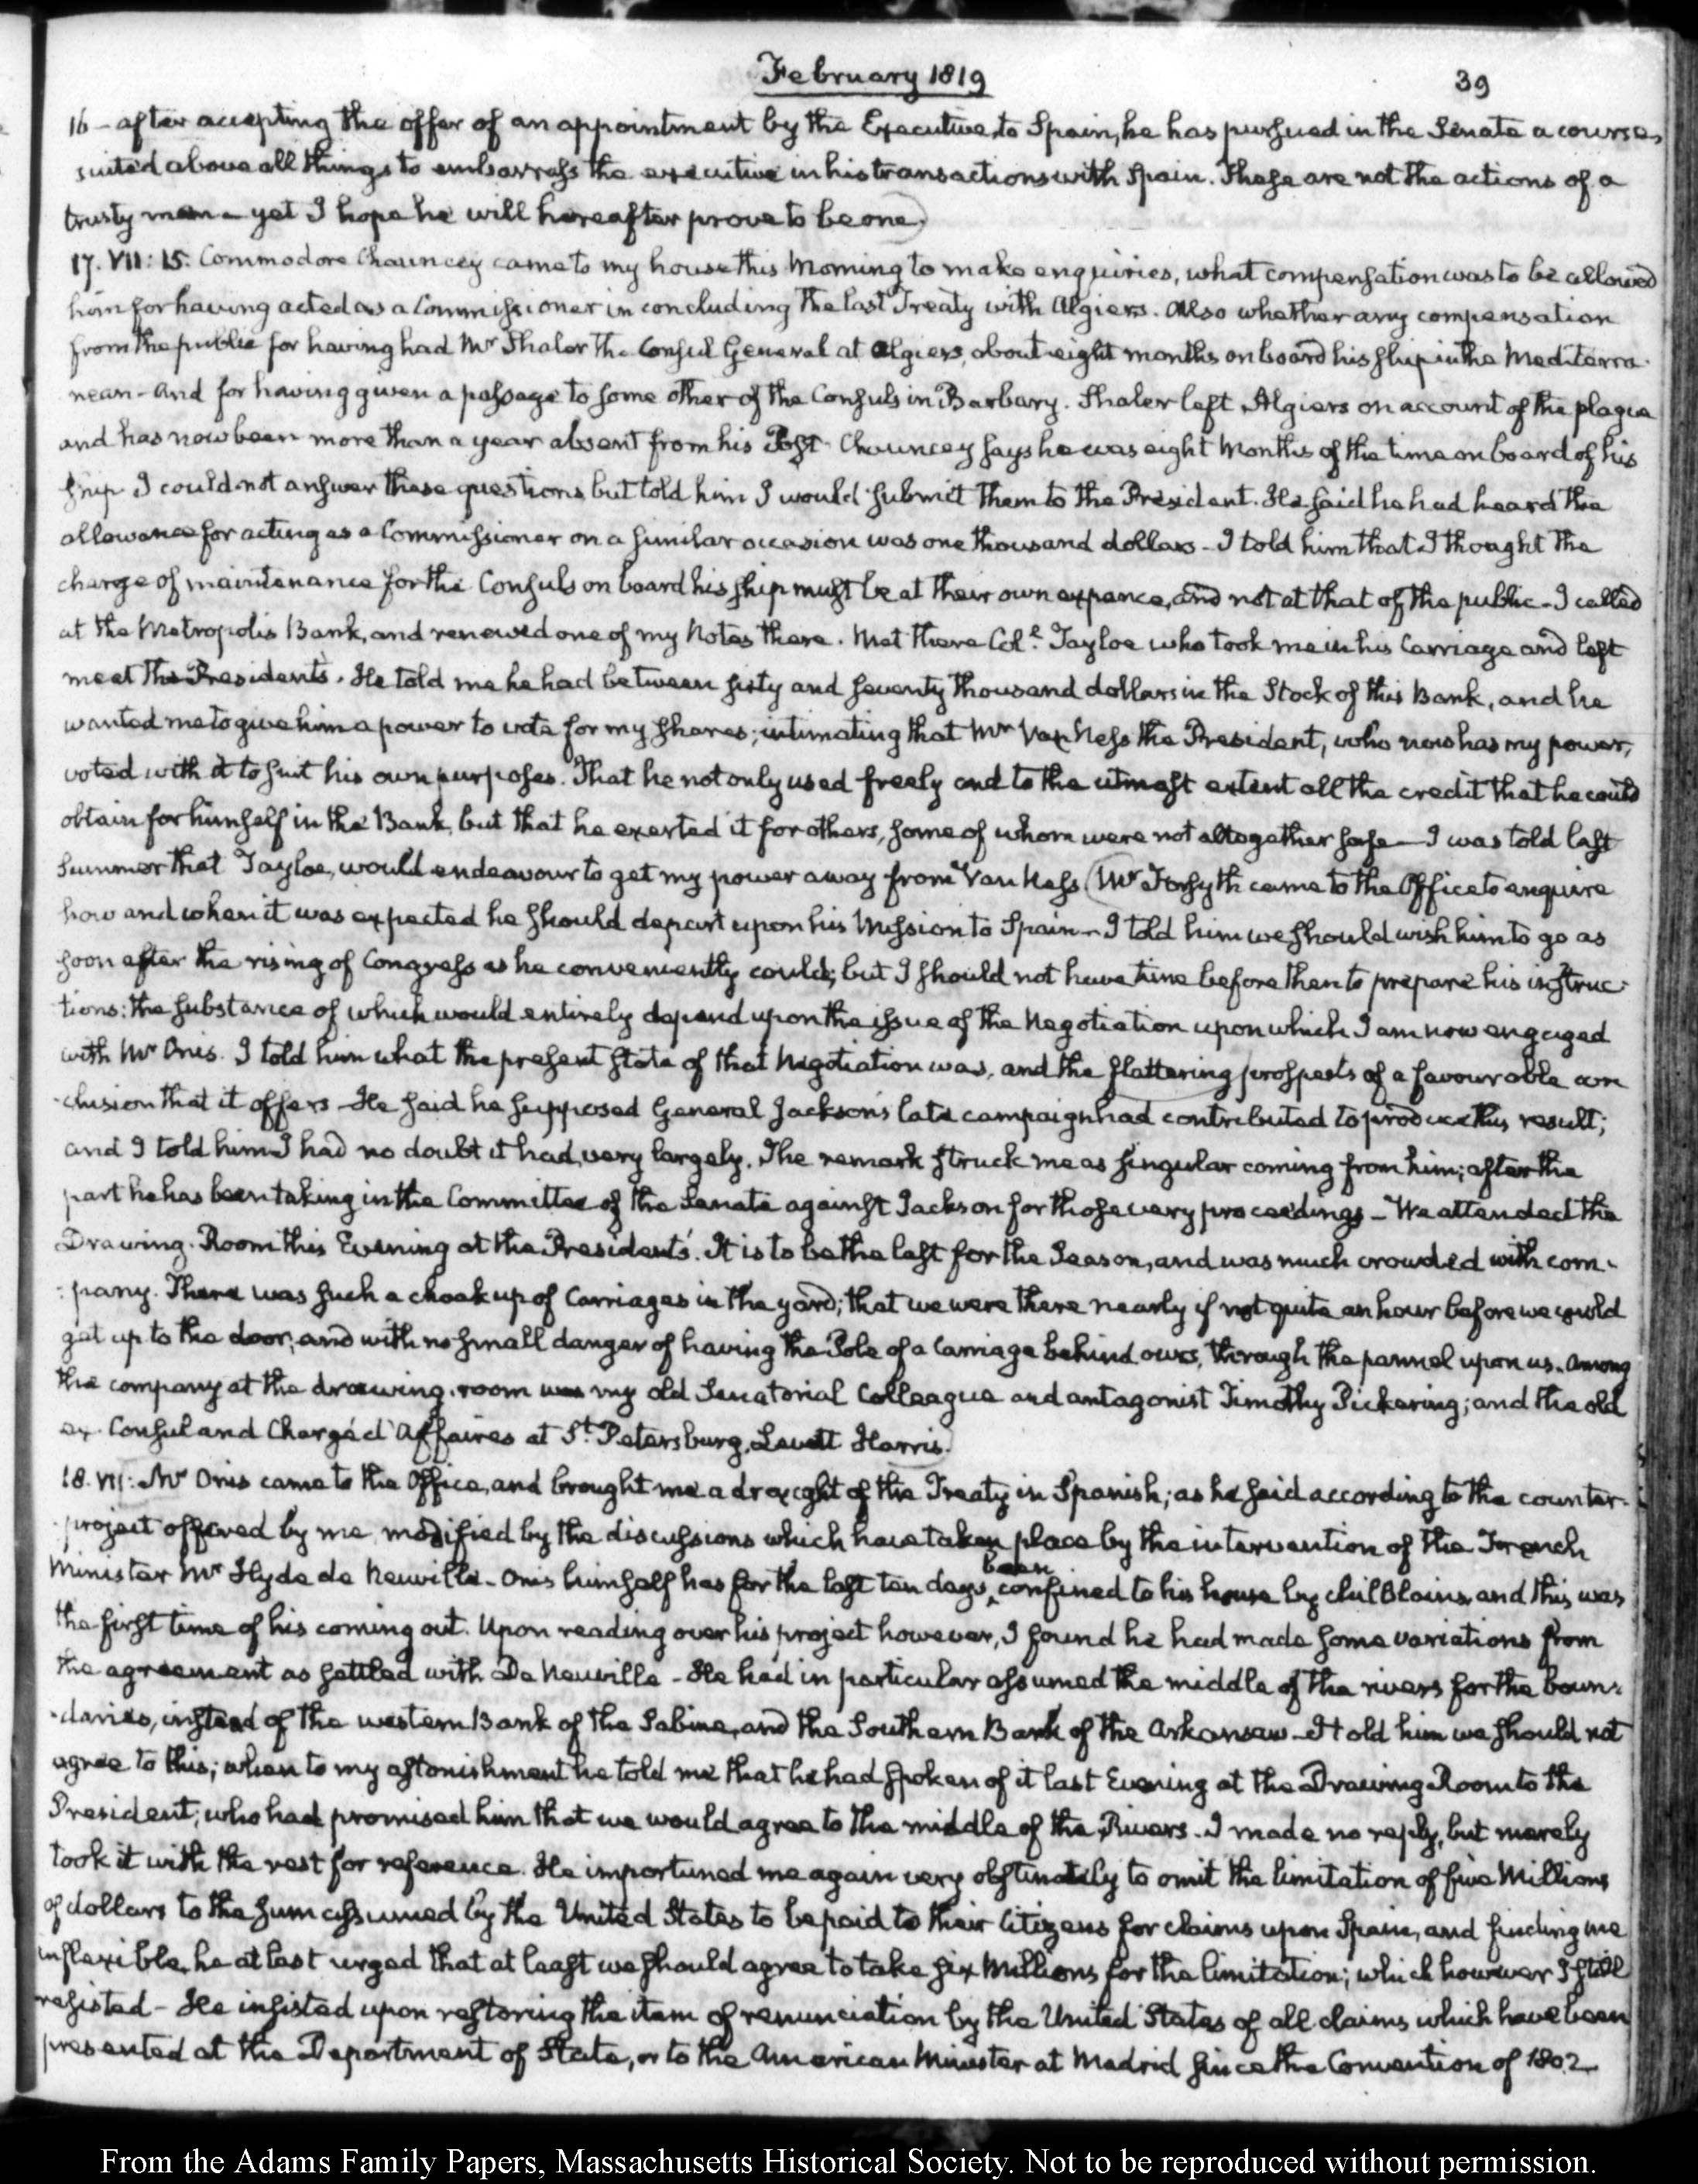 February 1819
39
16 - after accepting the offer of an appointment by the Executive, to Spain, he has pursued in the Senate a course,
suited above all things to embarrass the executive in his transactions with Spain. These are not the actions of a
trusty man - yet I hope he will hereafter prove to be one.)
17. VII: 15. Commodore Chauncey came to my house this Morning to make enquiries, what compensation was to be allowed
him for having acted as a Commissioner in concluding the last Treaty with Algiers. Also whether any compensation
from the public for having had Mr Shaler the Consul General at Algiers, about eight months on board his ship in the Mediterra-
nean - And for having given a passage to some other of the Consuls in Barbary. Shaler left Algiers on account of the plague
and has now been more than a year absent from his Post. Chauncey says he was eight Months of the time on board of his
ship I could not answer these questions but told him I would submit them to the President. He said he had heard the
allowance for acting as a Commissioner on a similar occasion was one thousand dollars - I told him that I thought the
charge of maintenance for the Consuls on board his ship must be at their own expence, and not at that of the public - I called
at the Metropolis Bank, and renewed one of my Notes there. Met there Coll. Tayloe who took me in his Carriage and left
me at the President's. He told me he had between sixty and seventy thousand dollars in the Stock of this Bank, and he
wanted me to give him a power to vote for my shares; intimating that Mr Van Ness the President, who now has my power,
voted with it to suit his own purposes. That he not only used freely and to the utmost extent all the credit that he could
obtain for himself in the Bank, but that he exerted it for others, some of whom were not altogether safe - I was told last
Summer that Tayloe, would endeavour to get my power away from Van Ness (Mr Forsyth came to the Office to enquire
how and when it was expected he should depart upon his Mission to Spain - I told him we should wish him to go as
soon after the rising of Congress as he conveniently could; but I should not have time before then to prepare his instruc-
tions: the substance of which would entirely depend upon the issue of the Negotiation upon which I am now engaged
with Mr Onis. I told him what the present state of that Negotiation was, and the flattering prospects of a favourable con
-clusion that it offers - He said he supposed General Jackson's late campaign had contributed to produce this result;
and I told him I had no doubt it had, very largely. The remark struck me as singular coming from him; after the
part he has been taking in the Committee of the Senate against Jackson for those very proceedings - We attended the
Drawing-Room this Evening at the President's. It is to be the last for the Season, and was much crowded with com-
-pany. There was such a choak up of Carriages in the yard; that we were there nearly if not quite an hour before we could
get up to the door; and with no small danger of having the Pole of a Carriage behind ours, through the pannel upon us. Among
the company at the drawing-room was my old Senatorial Colleague and antagonist Timothy Pickering; and the old
ex-Consul and Chargé d'Affaires at St. Petersburg, Levett Harris.
18. VII: Mr Onis came to the Office, and brought me a draught of the Treaty in Spanish; as he said according to the counter-
-project offered by me, modified by the discussions which have taken place by the intervention of the French
Minister Mr Hyde de Neuville - Onis himself has for the last ten days, been confined to his house by chilBlains, and this was
the first time of his coming out. Upon reading over his project however, I found he had made some variations from
the agreement as settled with De Neuville - He had in particular assumed the middle of the rivers for the boun-
-daries, instead of the western Bank of the Sabine, and the Southern Bank of the Arkansaw - I told him we should not
agree to this; when to my astonishment he told me that he had spoken of it last Evening at the Drawing Room to the
President; who had promised him that we would agree to the middle of the Rivers. I made no reply, but merely
took it with the rest for reference. He importuned me again very obstinately to omit the limitation of five Millions
of dollars to the sum assumed by the United States to be paid to their Citizens for claims upon Spain, and finding me
inflexible, he at last urged that at least we should agree to take six Millions for the limitation; which however I still
resisted - He insisted upon restoring the item of renunciation by the United States of all claims which have been
presented at the Department of State, or to the American Minister at Madrid since the Convention of 1802
From the Adams Family Papers, Massachusetts Historical Society. Not to be reproduced without permission.